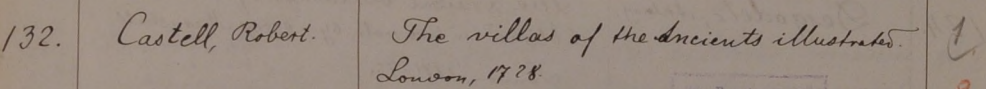 132. Castell, Robert. The villas of the Ancients illustrated. 1
London, 1728.